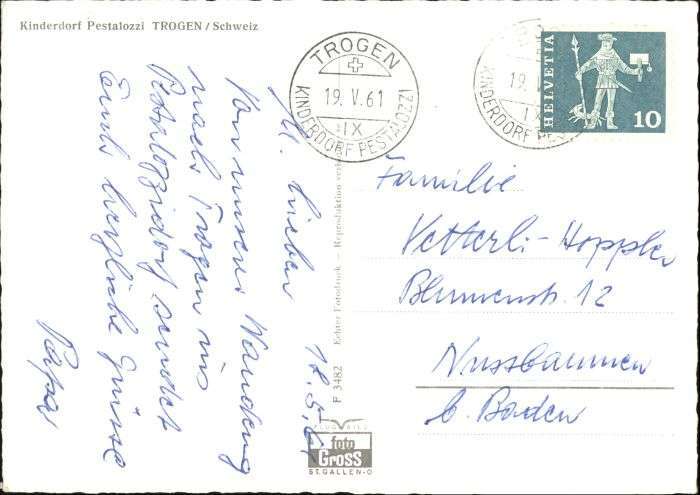 Kinderdorf Pestalozzi TROGEN / Schweiz
TROGEN
19. V. 61
IX
KINDERDORF PESTALOZZI
19.
IX
KINDERDORF PES
HELVETIA
10
M. Lieben 18.5.61
Von unserer Wanderung
nach Trogen ins
Pestalozzidorf sendet
Euch herzliche Grüsse
Papa
Familie
Vetterli-Hoppler
Blumenstr. 12
Nussbaumen
b. Baden
F 3482 Echter Fotodruck — Reproduktion verb.
foto
GROSS
ST. GALLEN-O